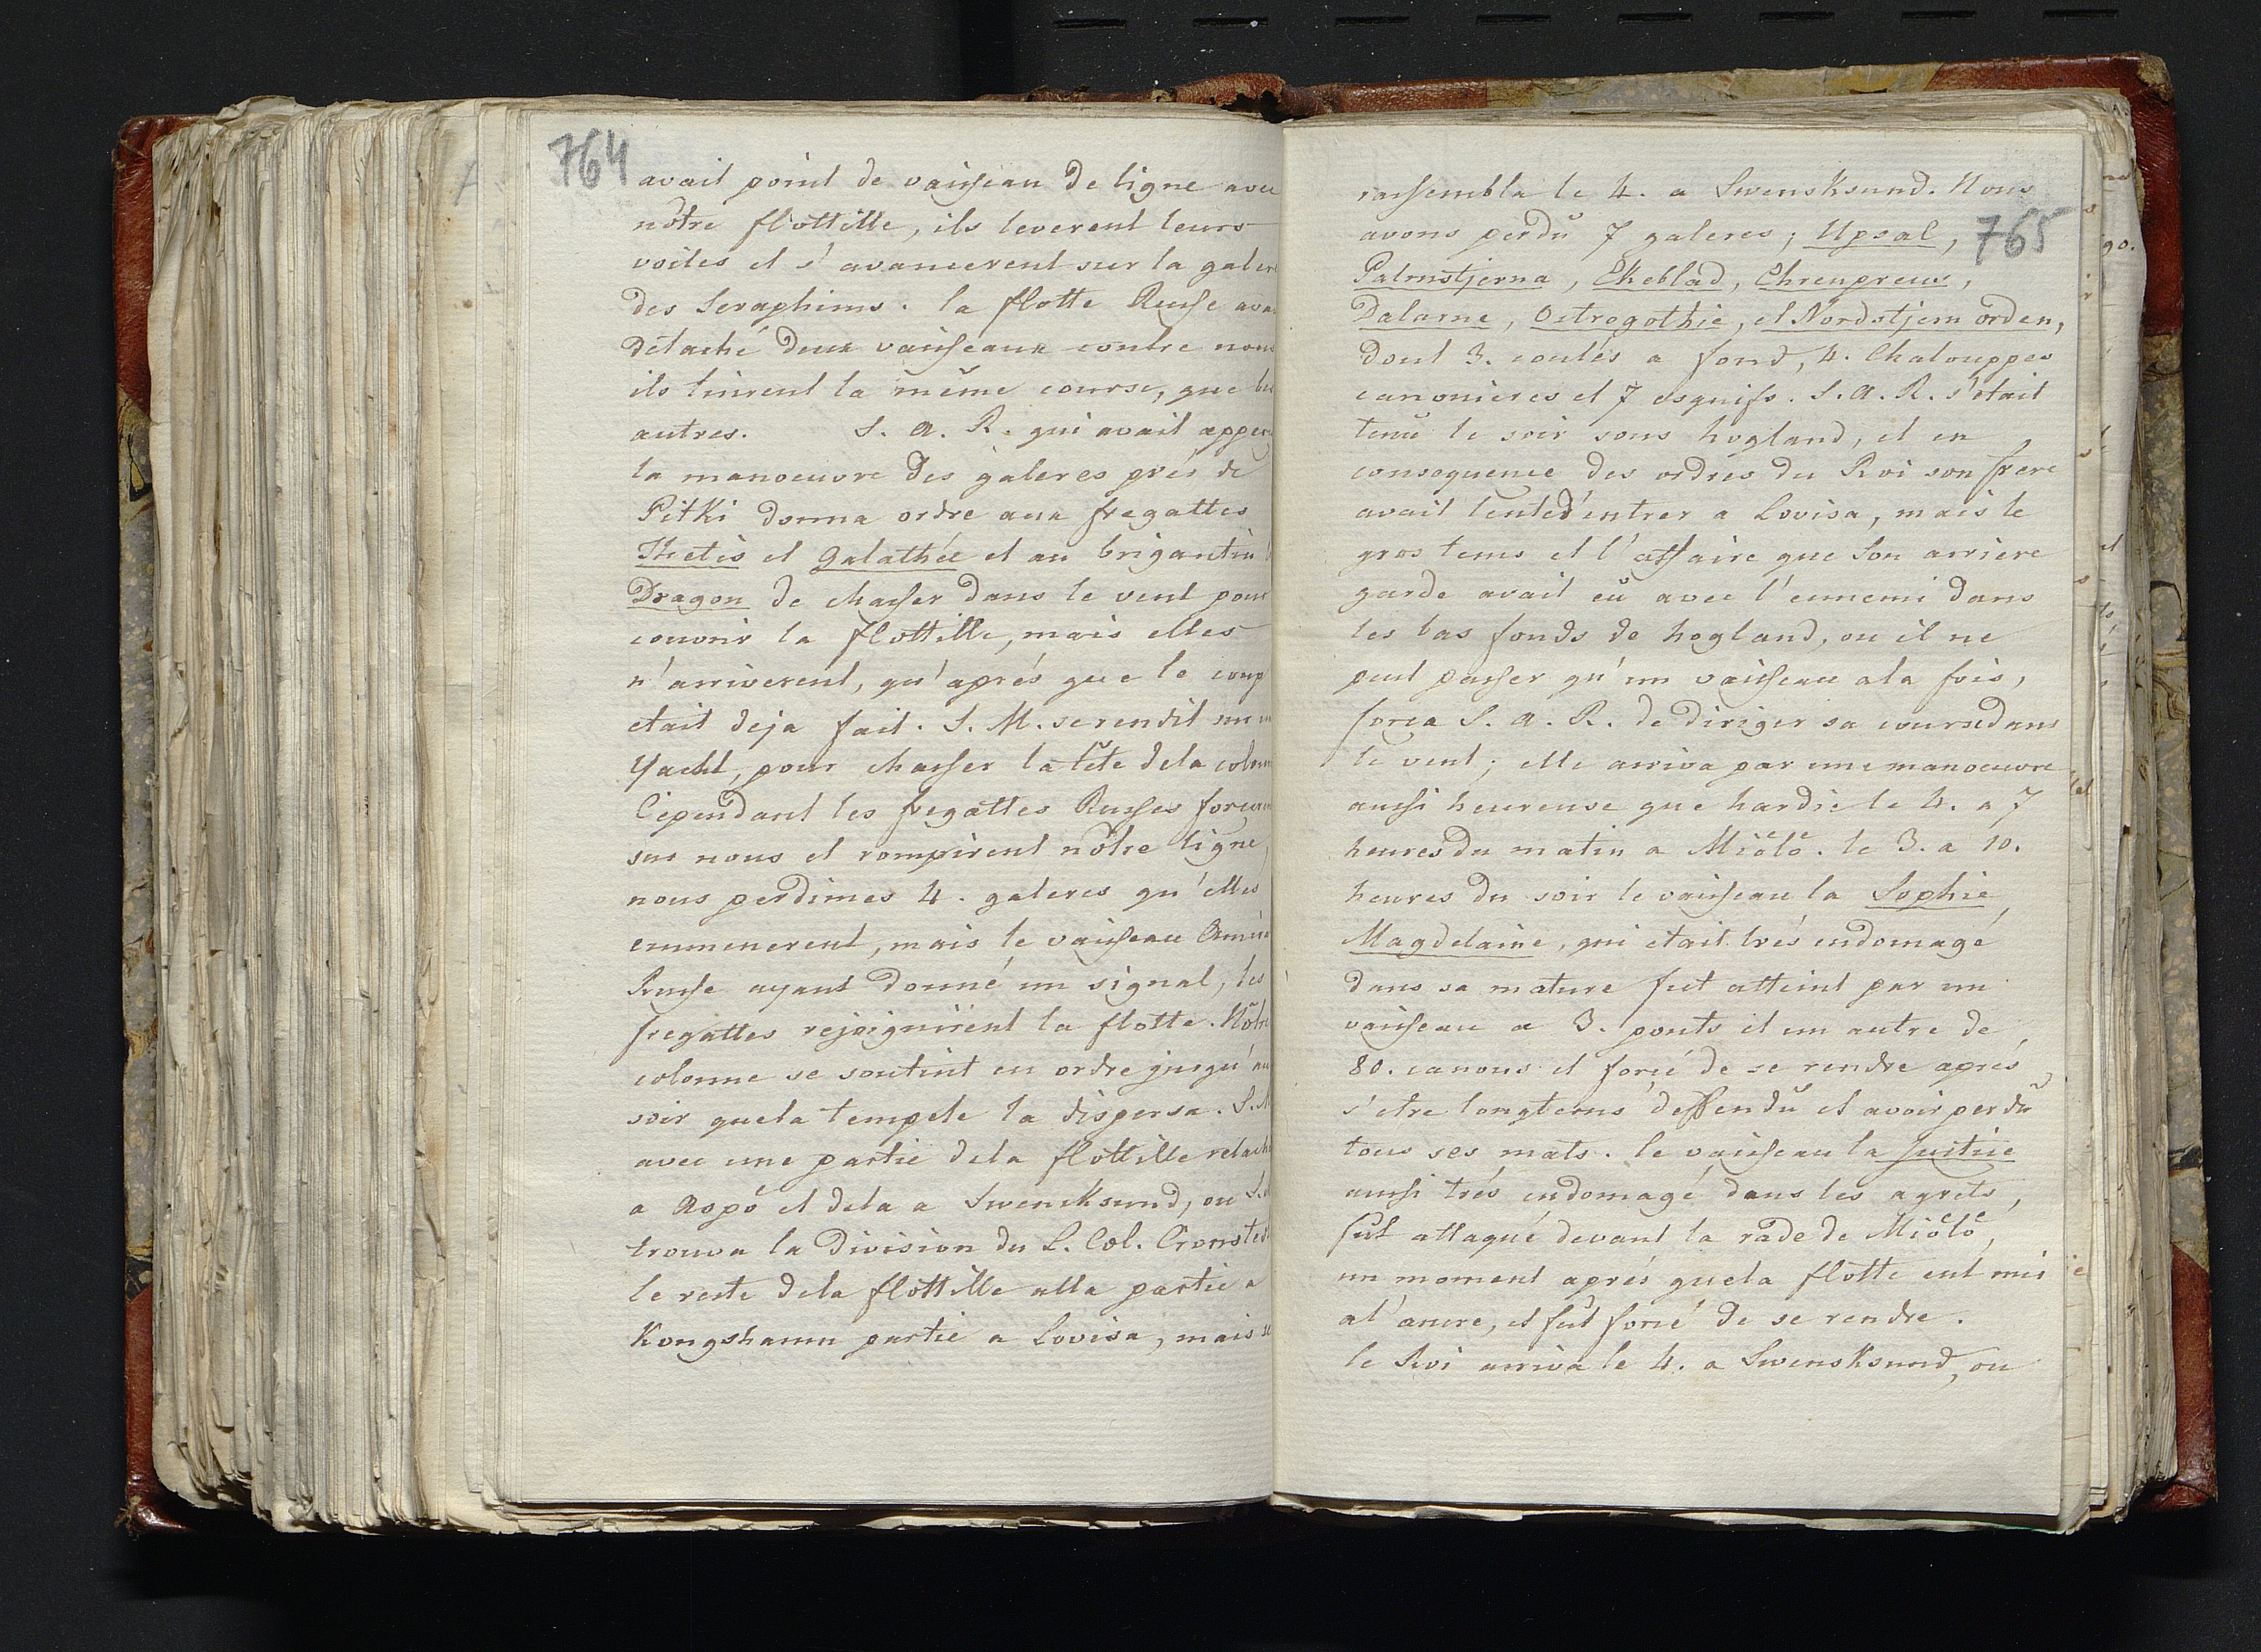 764
avait point de vaisseau de ligne avec
nôtre flottille, ils leverent leurs
voiles et s'avancerent sur la galere
des Seraphims. la flotte Russe avai
détaché deux vaisseaux contre nous
ils tinrent la même course, que les
autres. S. A. R. qui avait apperç
la manoeuvre des galeres près de
Pitki donna ordre aux fregattes
Thetis et Galathée et au brigantin
Dragon de chasser dans le vent pour
couvrir la flottille, mais elles
n'arriverent, qu'aprés que le coup
etait deja fait. S. M. se rendit sur un
Yacht, pour chasser la tête dela colonn
Cependant les fregattes Russes forcer
sur nous et rompirent nôtre ligne,
nous perdimes 4. galeres qu'elles
emmenerent, mais le vaisseau Amir
Russe ayant donné un signal, les
fregattes rejoignirent la flotte. Nôtre
colonne se soutint en ordre jusqu'au
soir quela tempete la dispersa. S. M
avec une partie dela flottille relach
a Aspö et dela a Swencksund, ou S. M
trouva la Division du L. Col. Cronsted
le reste dela flottille alla partie a
Kongshamn partie a Lovisa, mais se
rassembla le 4. a Swensksund. Nous
avons perdû 7 galeres; Upsal,
765
Palmstjerna, Ekeblad, Ehrenpreus,
Dalarne, Ostrogothie, et Nordstjern orden,
dont 3. coulés a fond, 4. Chalouppes
canonieres et 7 esquifs. S. A. R. s'etait
tenû le soir sous hogland, et en
consequence des ordres du Roi son frere
avait tenté d'entrer a Lovisa, mais le
gros tems et l'affaire que Son arriere
garde avait eû avec l'ennemi dans
les bas fonds de hogland, ou il ne
peut passer qu'un vaisseau ala fois,
força S. A. R. de diriger sa course dans
le vent; elle arriva par une manoeuvre
aussi heureuse que hardie le 4. a 7
heures du matin a Miölö. le 3. a 10.
heures du soir le vaisseau la Sophie
Magdelaine, qui etait trés endomagé
dans sa mature fut atteint par un
vaisseau a 3. ponts et un autre de
80. canons et forcé de se rendre aprés
s'etre longtems deffendû et avoir perdû
tous ses mats. le vaisseau la Justice
aussi trés endomagé dans les agrets,
fut attaqué devant la rade de Miölö,
un moment aprés quela flotte eut mis
al'ancre, et fut forcé de se rendre.
le Roi arriva le 4. a Swensksund, ou